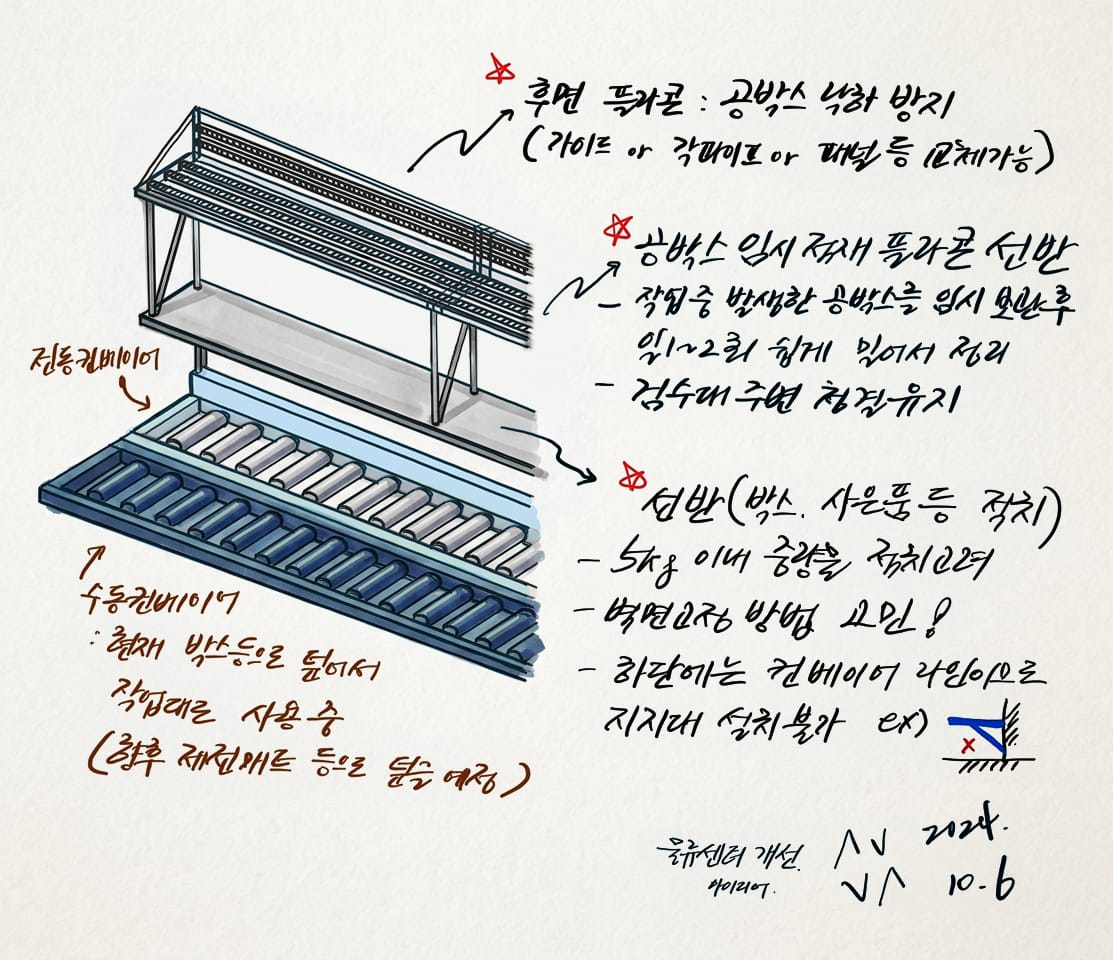 후면 플라콘 : 공박스 낙하 방지
(가이드 or 각파이프 or 패널 등 교체가능)
공박스 임시 적재 플라콘 선반
- 작업 중 발생한 공박스를 임시 보관 후
일 1~2회 쉽게 밀어서 정리
- 검수대 주변 청결유지
전동컨베이어
선반(박스. 사은품 등 적치)
- 5kg 이내 중량물 적치고려
- 벽면고정 방법 고민!
- 하단에는 컨베이어 라인이므로
지지대 설치불가 ex)
x
수동컨베이어
: 현재 박스등으로 덮어서
작업대로 사용 중
(향후 제전매트 등으로 덮을 예정)
물류센터 개선.
아이디어.
2024.
10.6